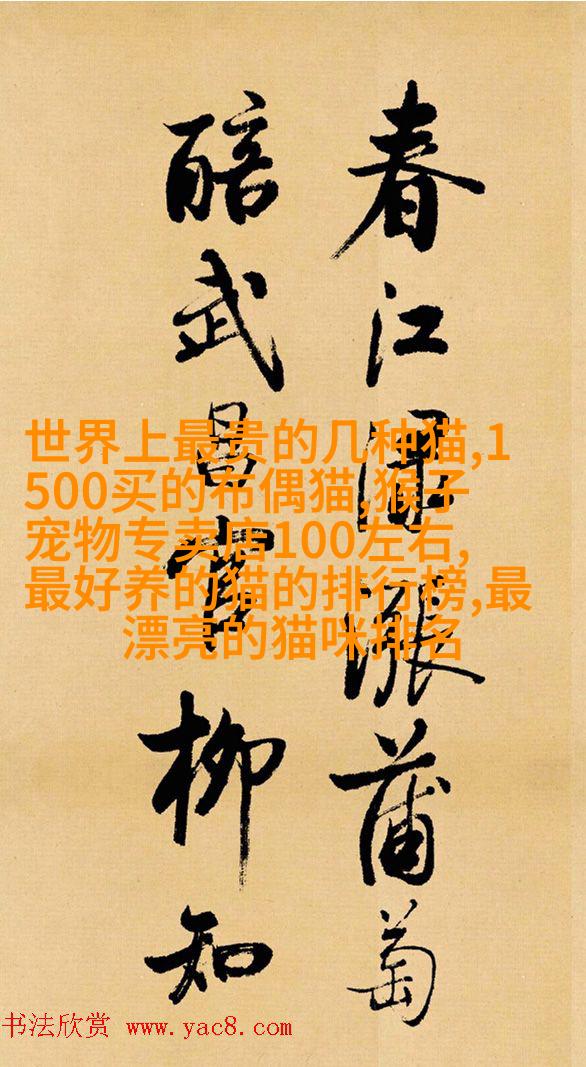 春江漲蒲萄
醅武昌官柳知
世界上最贵的几种猫,1
500买的布偶猫,猴子
宠物专卖店100左右,
最好养的猫的排行榜,最
漂亮的猫咪排名
书法欣赏 www.yac8.com